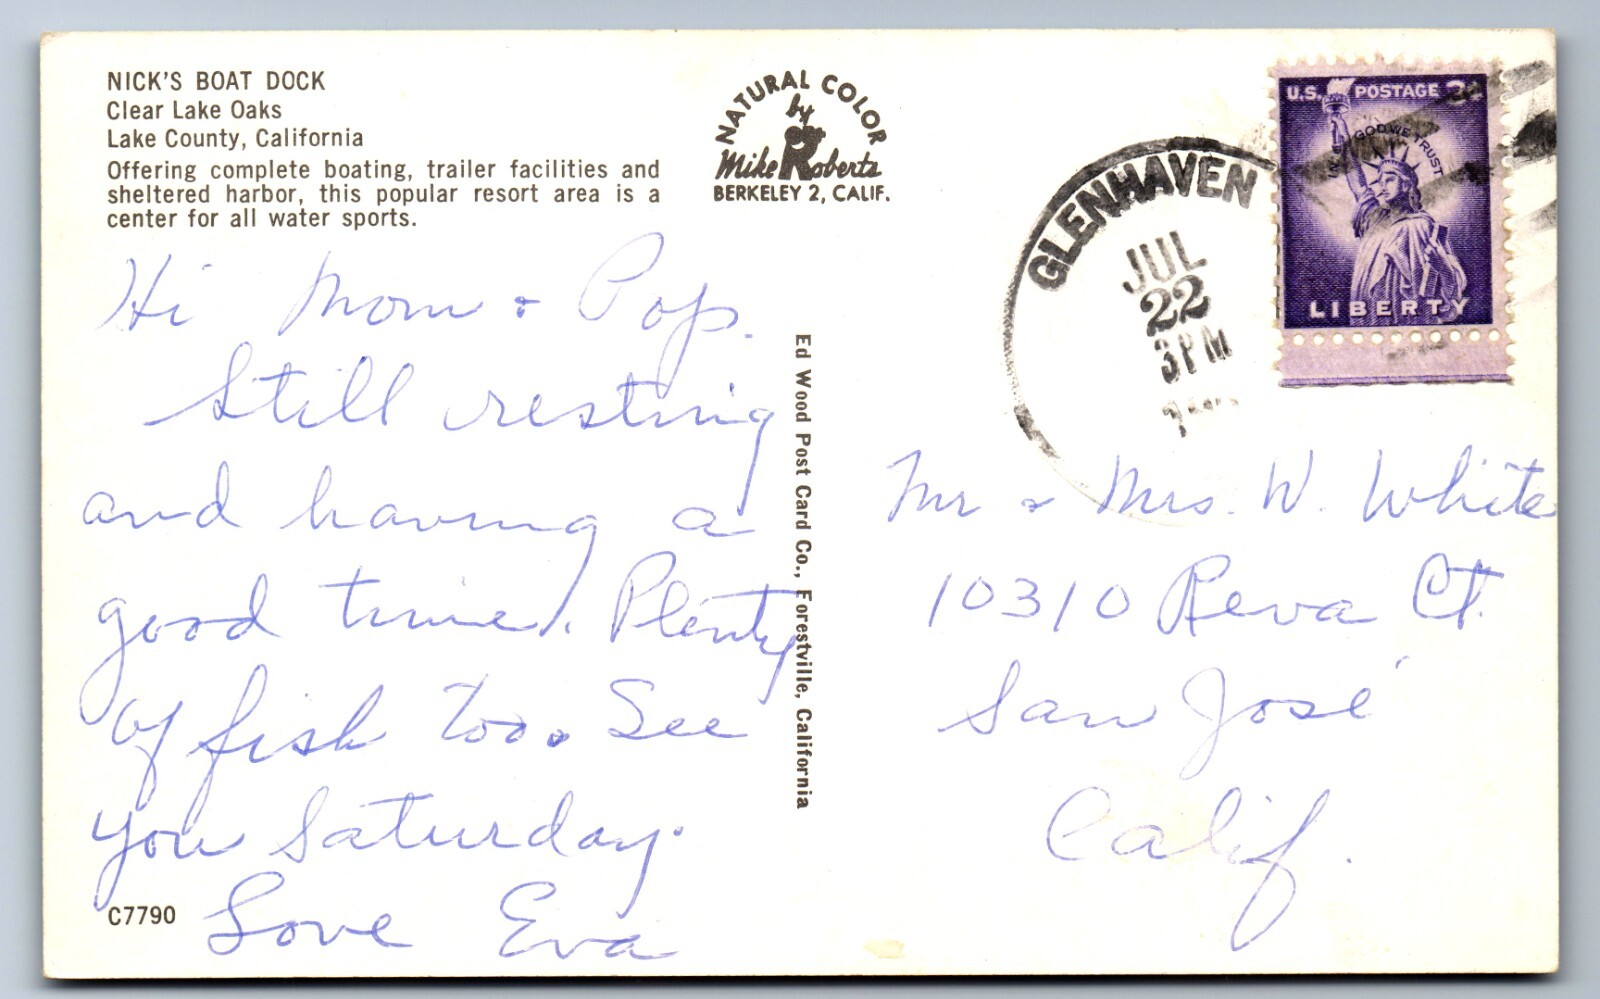 NICK'S BOAT DOCK
Clear Lake Oaks
Lake County, California
Offering complete boating, trailer facilities and
sheltered harbor, this popular resort area is a
center for all water sports.
NATURAL COLOR
by
Mike Roberts
BERKELEY 2, CALIF.
GLENHAVEN
JUL
22
3PM
U.S. POSTAGE 3¢
IN GOD WE TRUST
LIBERTY
Hi Mom & Pop.
Still resting
and having a
good time. Plenty
of fish too. See
you Saturday.
Love Eva
C7790
Ed Wood Post Card Co., Forestville, California
Mr & Mrs. W. White
10310 Reva Ct.
San José
Calif.